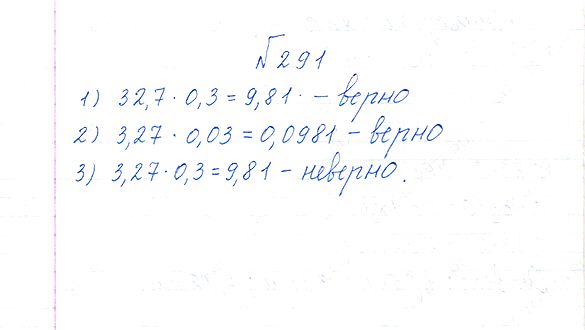 №291
1) 32,7 · 0,3 = 9,81 · – верно
2) 3,27 · 0,03 = 0,0981 – верно
3) 3,27 · 0,3 = 9,81 – неверно.